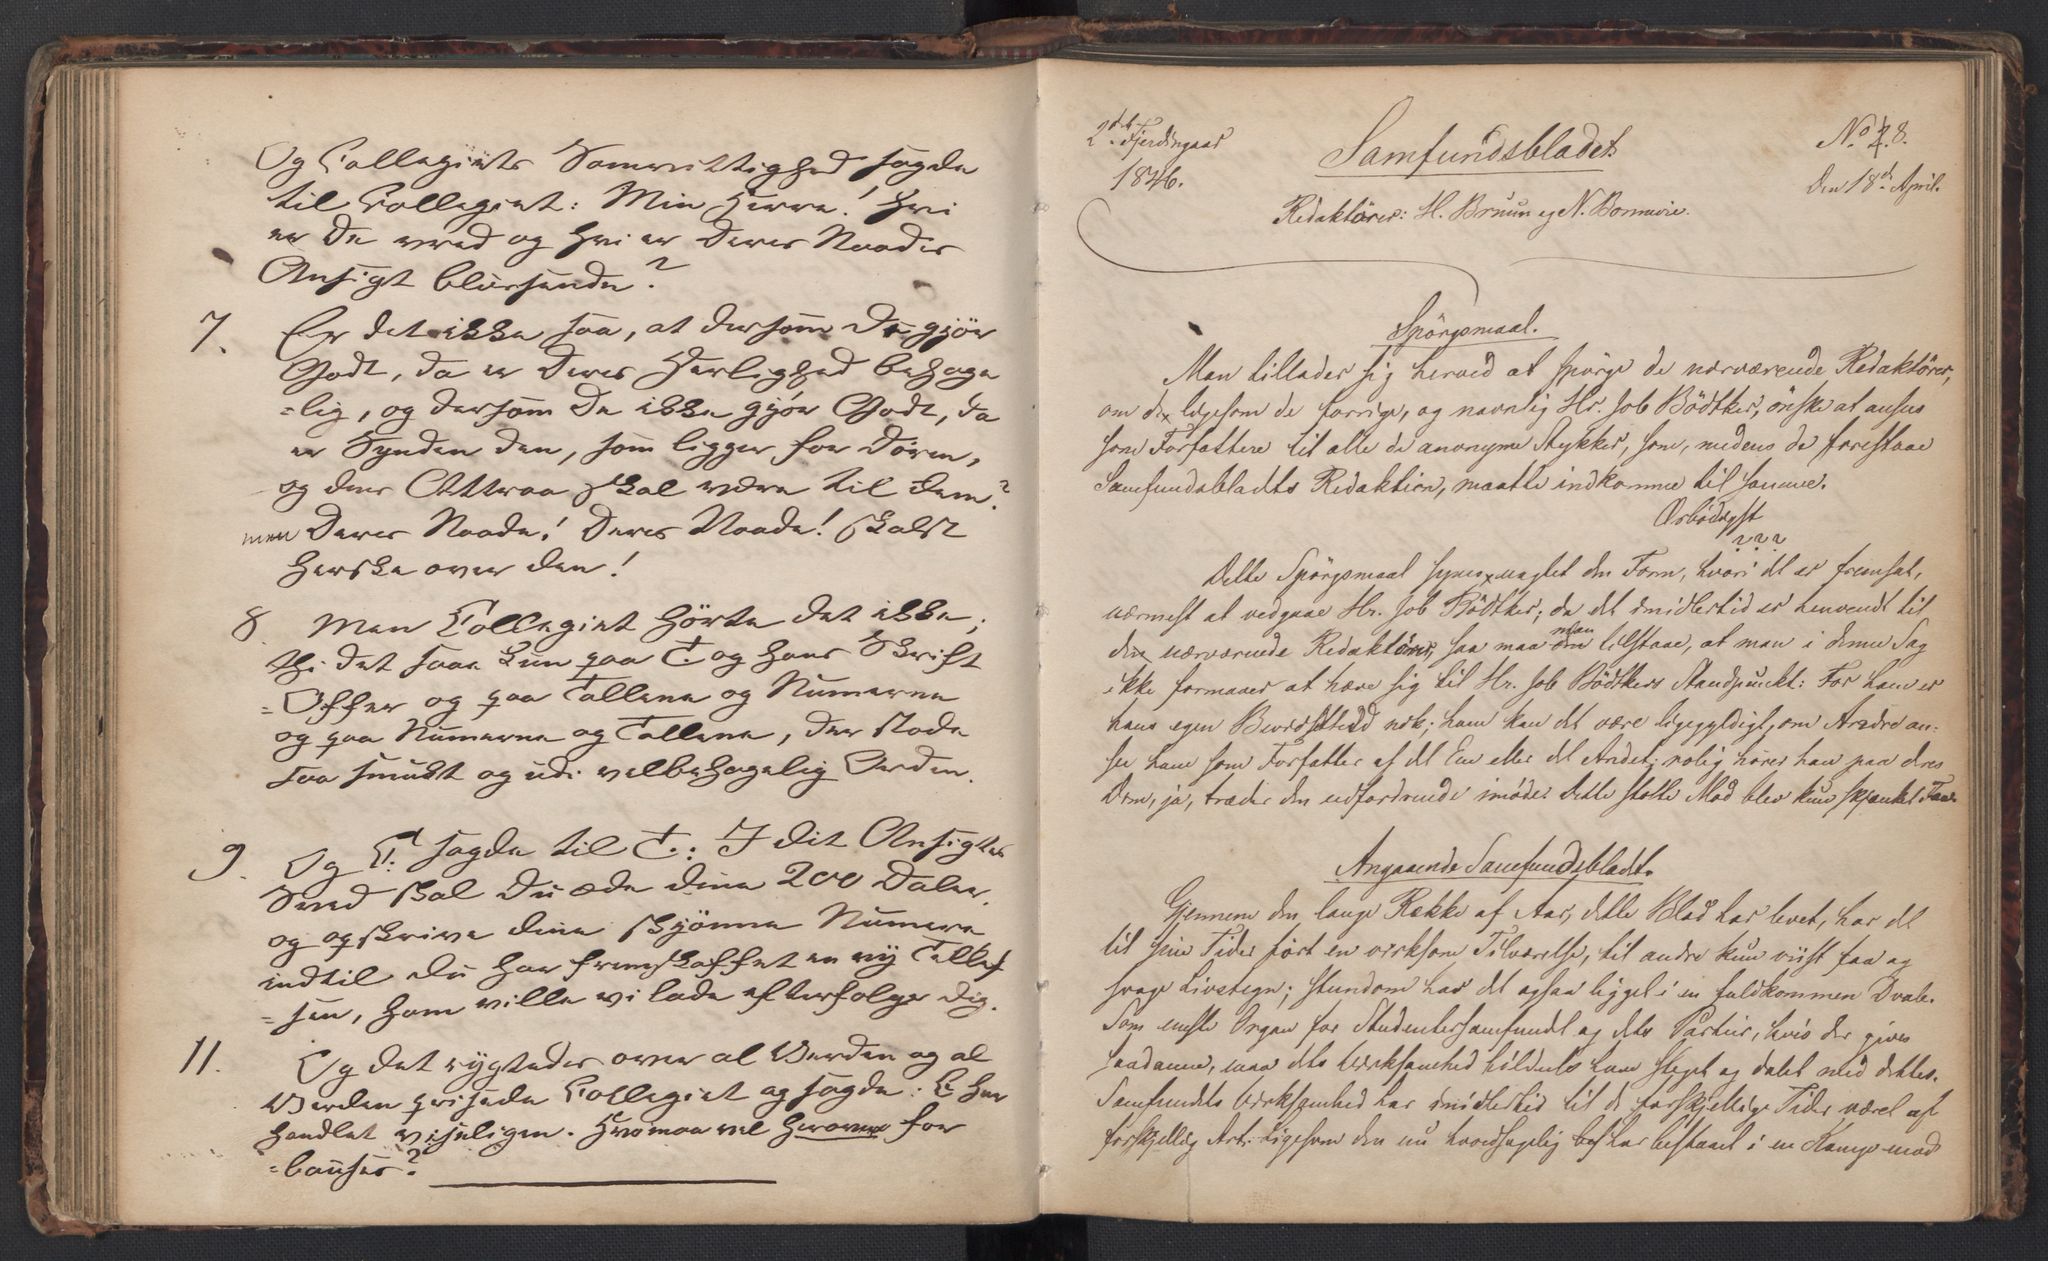 Og Collegiets Samvittighed sagde
til Collegiet: Min Herre! Hvi
er De vred og hvi er Deres Naades
Ansigt blussende?
7. Er det ikke saa, at dersom De gjør
Godt, da er Deres Herlighed behage
=lig, og dersom De ikke gjør Godt, da
er Synden den, som ligger for Døren,
og dens Attraa skal være til dem?
men Deres Naade! Deres Naade! skalst
herske over den!
8 Men Collegiet hørte det ikke;
thi det saae kun paa T. og hans Skrift
=Offer og paa Tallene og Numerne
og paa Numerne og Tallene, der stode
saa smukt og udi velbehagelig Orden.
9. Og C: sagde til T.: I dit Ansigtes
Sved skal Du æde dine 200 Daler.
og opskrive dine skjønne Numere
indtil du har fremskaffet en ny
=sen, ham ville vi lade efterfølge dig.
11. Og det rygtedes over al Verden og al
Verden prisede Collegiet og sagde: C har
handlet viseligen. Hvo maa vel herover for
=bauses?
2det Fjerdingaar
1846.
Samfundsbladet
No 8.
Den 18de April.
Redaktører: H. Bruun og N. Bonnevie.
Spörgsmaal.
Man tillader sig herved at spörge de nærværende Redaktörer,
om de ligesom de forrige, og navnlig Hr. Job Bödtker, önske at ansees
som Forfattere til alle de anonyme Stykker, som, medens de forestaae
Samfundsbladets Redaktion, maatte indkomme til samme.
Ærbödigst
???
Dette Spörgsmaal synes, uagtet den Form, hvori det er fremsat,
nærmest at vedgaae Hr. Job Bödtker; da det imidlertid er henvendt til
de nærværende Redaktörer, saa maa man tilstaae, at man i denne Sag
ikke formaaer at hæve sig til Hr. Job Bödtkers Standpunkt: For ham er
hans egen Bevidsthed nok; ham kan det være ligegyldigt, om Andre an=
see ham som Forfatter af det Ene eller det Andet; rolig hører han paa deres
Dom, ja, træder den udfordrende imöde. Dette stolte Mod blev kun skjænket Faa.
Angaaende Samfundsbladet.
Gjennem den lange Række af Aar, dette Blad har levet, har det
til sine Tider fört en virksom Tilværelse, til andre kun viist faa og
svage Livstegn; stundom har det ogsaa ligget i en fuldkommen Dvale.
Som eneste Organ for Studentersamfundet og dets Partier, hvis der gives
saadanne, maa dets Virksomhed have steget og dalet med dettes.
Samfundets Virksomhed har imidlertid til de forskjellige Tider været af
forskjellig Art. Ligesom den nu hovedsagelig har bestaaet i en Kamp mod